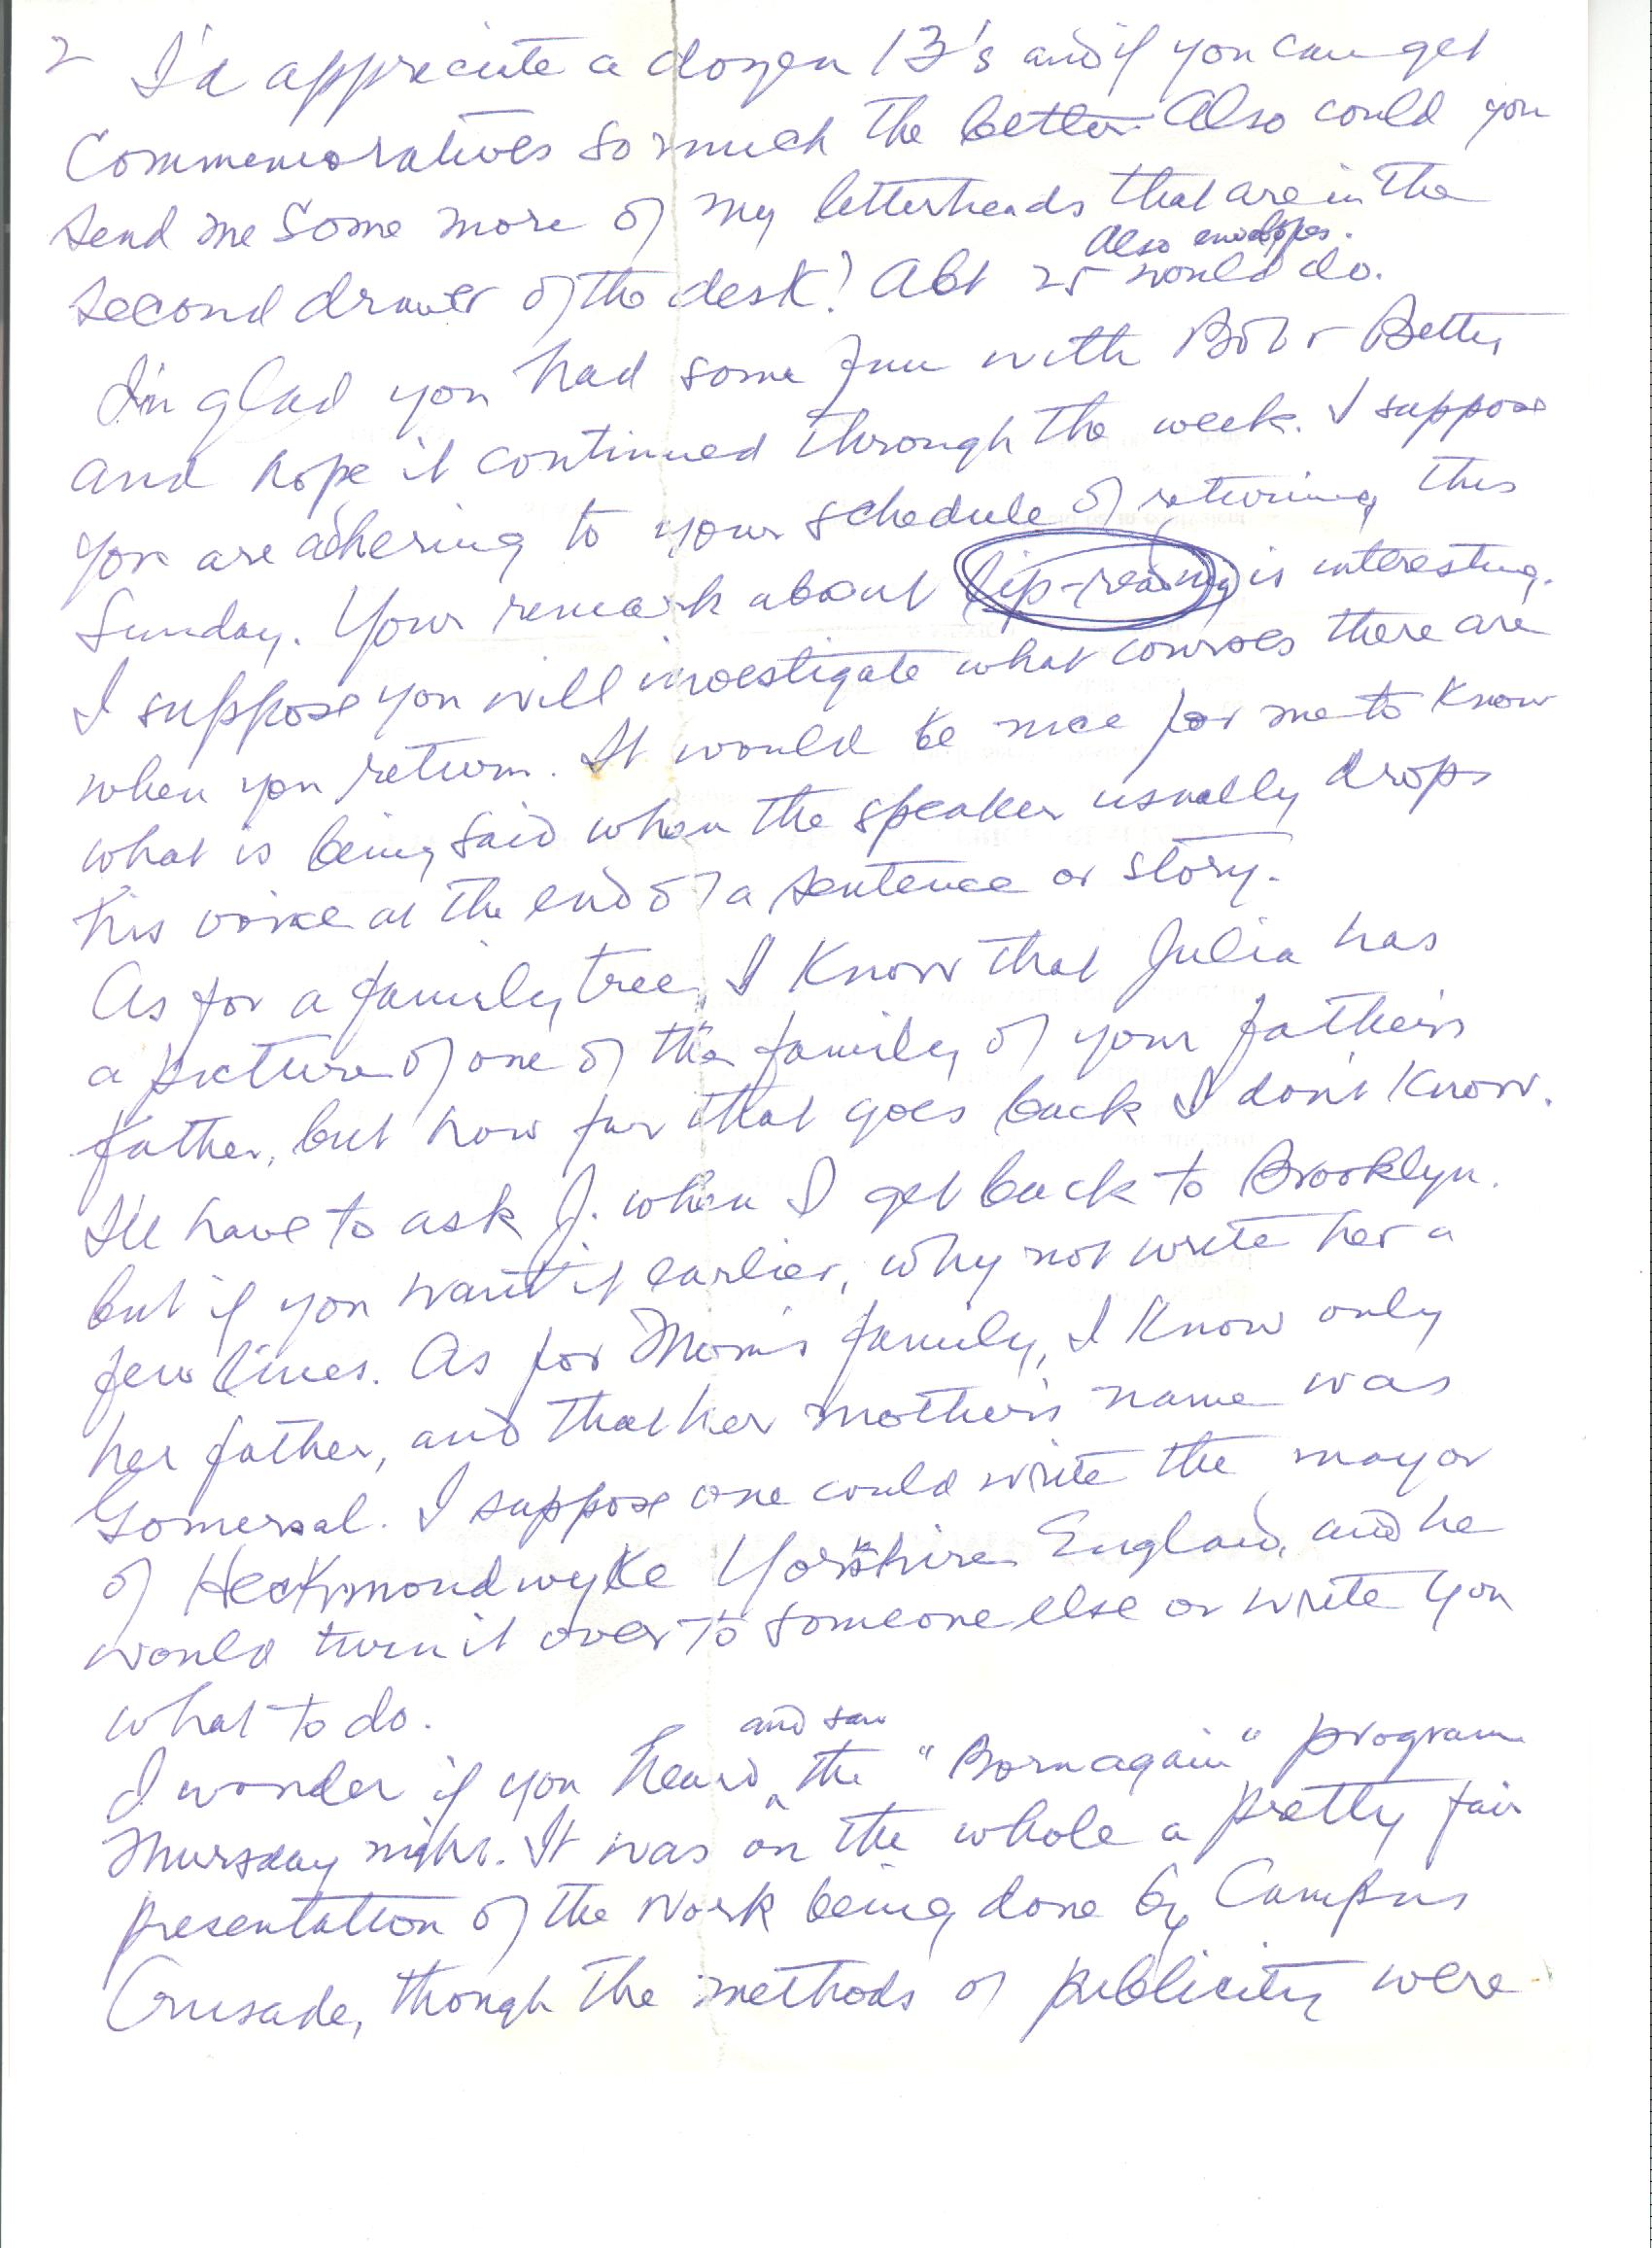 2 I'd appreciate a dozen 13's and if you can get
Commemoratives so much the better. Also could you
send me some more of my letterheads that are in the
Also envelopes.
second drawer of the desk? Abt 25 would do.
I'm glad you had some fun with Bob & Betty
and hope it continued through the week. I suppose
you are adhering to your schedule of returning this
Sunday. Your remark about lip-reading is interesting.
I suppose you will investigate what courses there are
when you return. It would be nice for me to know
what is being said when the speaker usually drops
his voice at the end of a sentence or story.
As for a family tree, I know that Julia has
a picture of one of the family of your father's
father, but how far that goes back I don't know.
I'll have to ask J. when I get back to Brooklyn.
but if you want it earlier, why not write her a
few lines. As for Mom's family, I know only
her father, and that her mother's name was
Gomersal. I suppose one could write the mayor
of Heckmondwyke Yorkshire England, and he
would turn it over to someone else or write you
what to do.
and saw
I wonder if you heard ^ the "Born again" program
Thursday night. It was on the whole a pretty fair
presentation of the work being done by Campus
Crusade, though the methods of publicity were